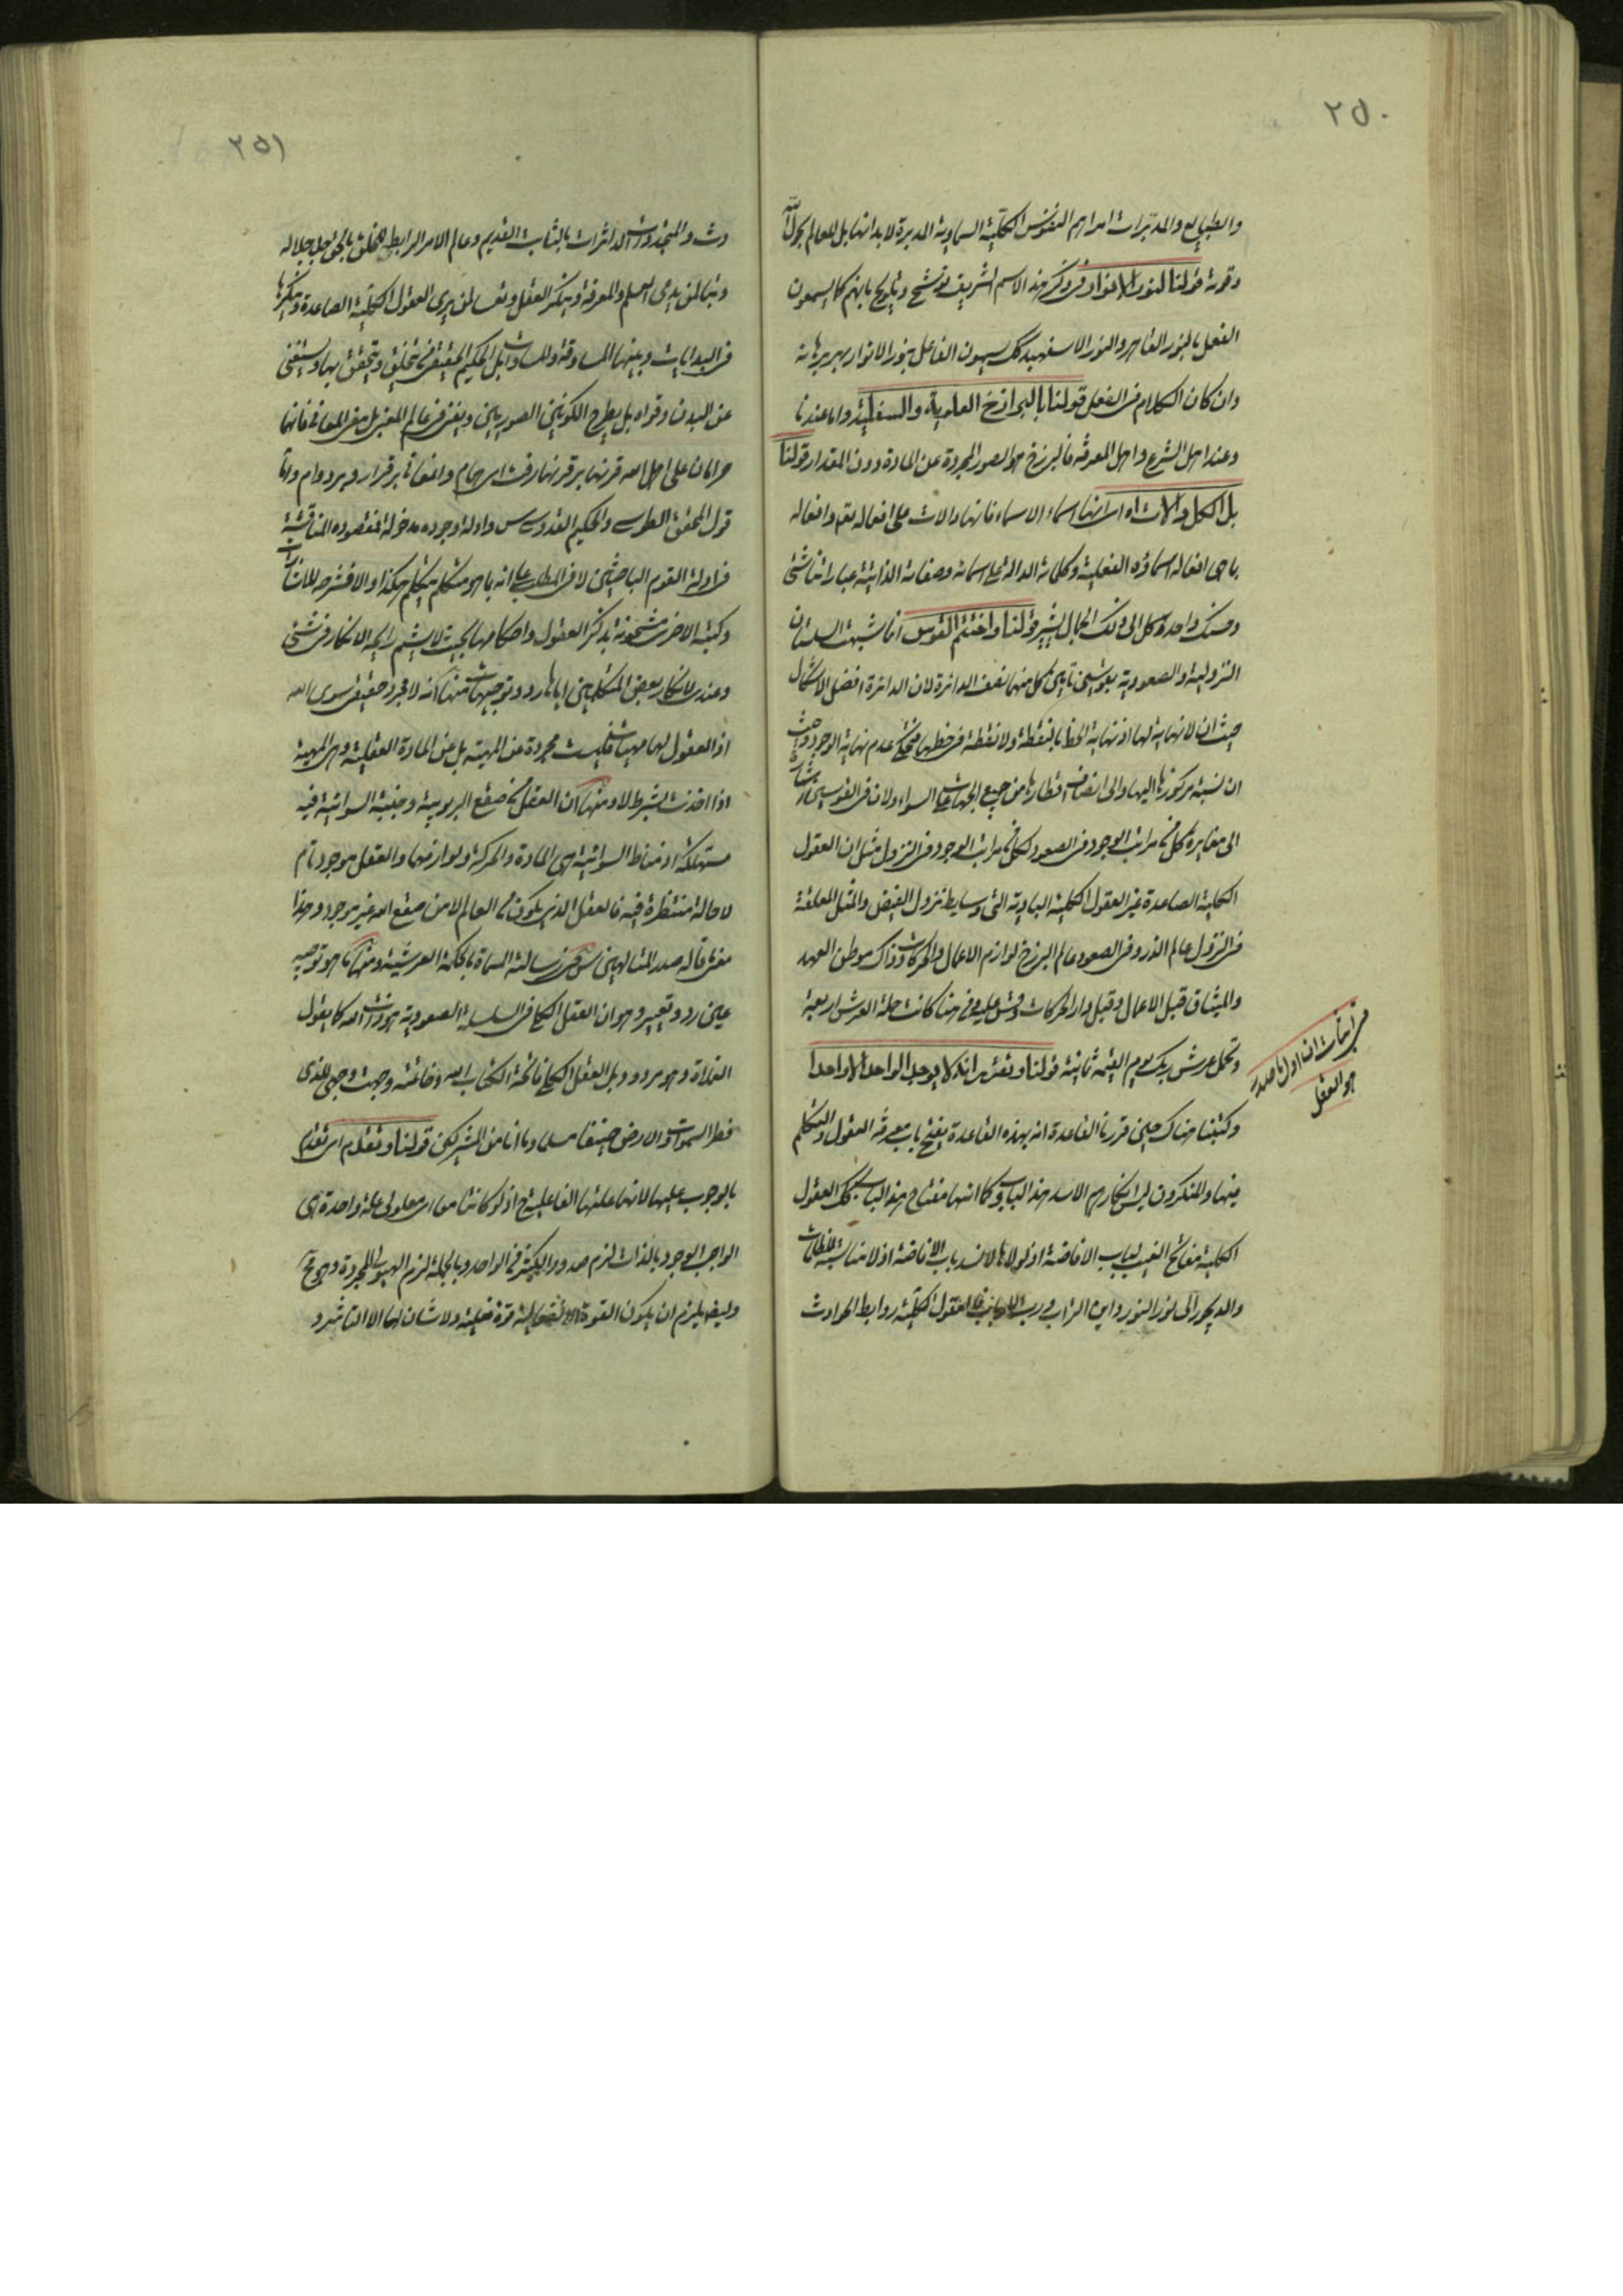 ٢٥٠
والطبايع والمدبرات امرا هم النفوس الكلية السماوية المدبرة لابدانها بل للعالم بحول الله
وقوته قولنا النور الانوار وفى ذكر هذا الاسم الشريف توشيح وتلويح بانهم كما يسمون
العقل بالنور القاهر والنور الاسفهبد كك يسمون الفاعل بنور الانوار بهر برهانه
وان كان الكلام فى الفعل قولنا بالبرازخ العلوية والسفلية واما عندنا
وعند اهل الشرع واهل المعرفة فالبرزخ هو الصور المجردة عن المادة دون المقدار قولنا
بل الكل دالات اه اى انها اسماء الاسماء فانها دالات على افعاله تعم وافعاله
بما هى افعاله اسماؤه الفعلية وكلماته الدالة على اسمائه وصفاته الذاتية عباراتنا شتى
وحسنك واحد وكل الى ذلك الجمال يشير قولنا واختتم القوس انما شبهت السلسلتان
النزولية والصعودية بقوسين تاتى كل منهما نصف الدائرة لان الدائرة افضل الاشكال
حيث ان لا نهاية لها اذ نهاية الخط بالنقطة ولا نقطة فى خطها فتحكى عدم نهاية الوجود وحيث
ان نسبة مركزها اليها والى انصاف اقطارها من جميع الجهات على السواء ولان فى القوسين اشارة
الى مغايرة كل من مراتب الوجود فى الصعود لكل من مراتب الوجود فى النزول مثل ان العقول
الكلية الصاعدة غير العقول الكلية البادية التى وسايط نزول الفيض والمثل المعلقة
فى النزول عالم الذر وفى الصعود عالم البرزخ لوازم الاعمال والحركات وذاك موطن العهد
والميثاق قبل الاعمال وقبل دار الحركات وقس عليه ومن هنا كانت حملة العرش اربعة
وتحمل عرش ربك يوم القيمة ثمانية قولنا وتقرر انه لا يوجد الواحد الا واحدا
وكتبنا هناك حين قررنا القاعدة انه بهذه القاعدة يفتح باب معرفة العقول والتكلم
فيها والمنكرون ليس انكارهم الا لسد هذا الباب وكما انها مفتاح هذا الباب كك العقول
الكلية مفاتح الغيب لباب الافاضة اذ لولاها لانسد باب الافاضة اذ لا مناسبة للظلمات
والديجور الى نور النور واين التراب ورب الارباب فالعقول الكلية روابط الحوادث
فى اثبات ان اول ما صدر
هو العقل
٢٥١
دث والمتجددات الداثرات بالثابت القديم وعالم الامر الرابط للخلق بالحق جل جلاله
وتبا لمن يدعى العلم والمعرفة وينكر العقل وتعسا لمن يرى العقول الكلية الصاعدة وينكرها
فى البدايات وبينهما المساوقة والمساوات بل الحكيم الحقيقى من تخلق وتحقق بها ويستغنى
عن البدن وقواه بل يطرح الكونين الصوريين ويفنى فى عالم المعنى بل معنى المعانى فانهما
حرامان على اهل الله
قول المحقق الطوسى والحكيم القدوسى وادلة وجوده مدخولة مقصوده المناقشة
فى ادلة القوم الباحثين لا فى المطلب على انه بما هو متكلم يتكلم هكذا والا فشرحه للاشارات
وكتبه الاخرى مشحونة بذكر العقول واحكامها بحيث لا يشم رايحة الانكار فى شئى
وعندى لانكار بعض المتكلمين اياها ردود وتوجيهات منها انه لا مجرد حقيقى سوى الله
اذ العقول لها مهيات فليست مجردة عن المهية بل عن المادة العقلية وهى المهية
اذا اخذت بشرط لا ومنها ان العقل من صقع الربوبية وجنبة السوائية فيه
مستهلكة اذ مناط السوائية هى المادة والحركة ولوازمهما والعقل موجود تام
لا حالة منتظرة فيه فالعقل الذى يكون من العالم لا من صقع الله غير موجود وهذا
معنى ما قاله صدر المتالهين س فى رسالته المسماة بالحكمة العرشية ومنها ما هو توجيه
عين رد وتعيير وهو ان العقل الكلى فى السلسلة الصعودية هو ذات الله كما يقول
الغلاة وهو مردود بل العقل الكلى فاتحة الكتاب الله وخاتمته وجهت وجهى للذى
فطر السموات والارض حنيفا مسلما وما انا من المشركين قولنا وتقدم اى تقدم
بالوجوب عليها لانها علتها الفاعلية ح اذ لو كانتا معا اى معلولى علة واحدة هى
الواجب الوجود بالذات لزم صدور الكثير من الواحد وبالجملة لزم الهيولى المجردة وهو مح
وايضا يلزم ان يكون القوة الانفعالية قوة فعلية ولا شان لها الا التاثر و